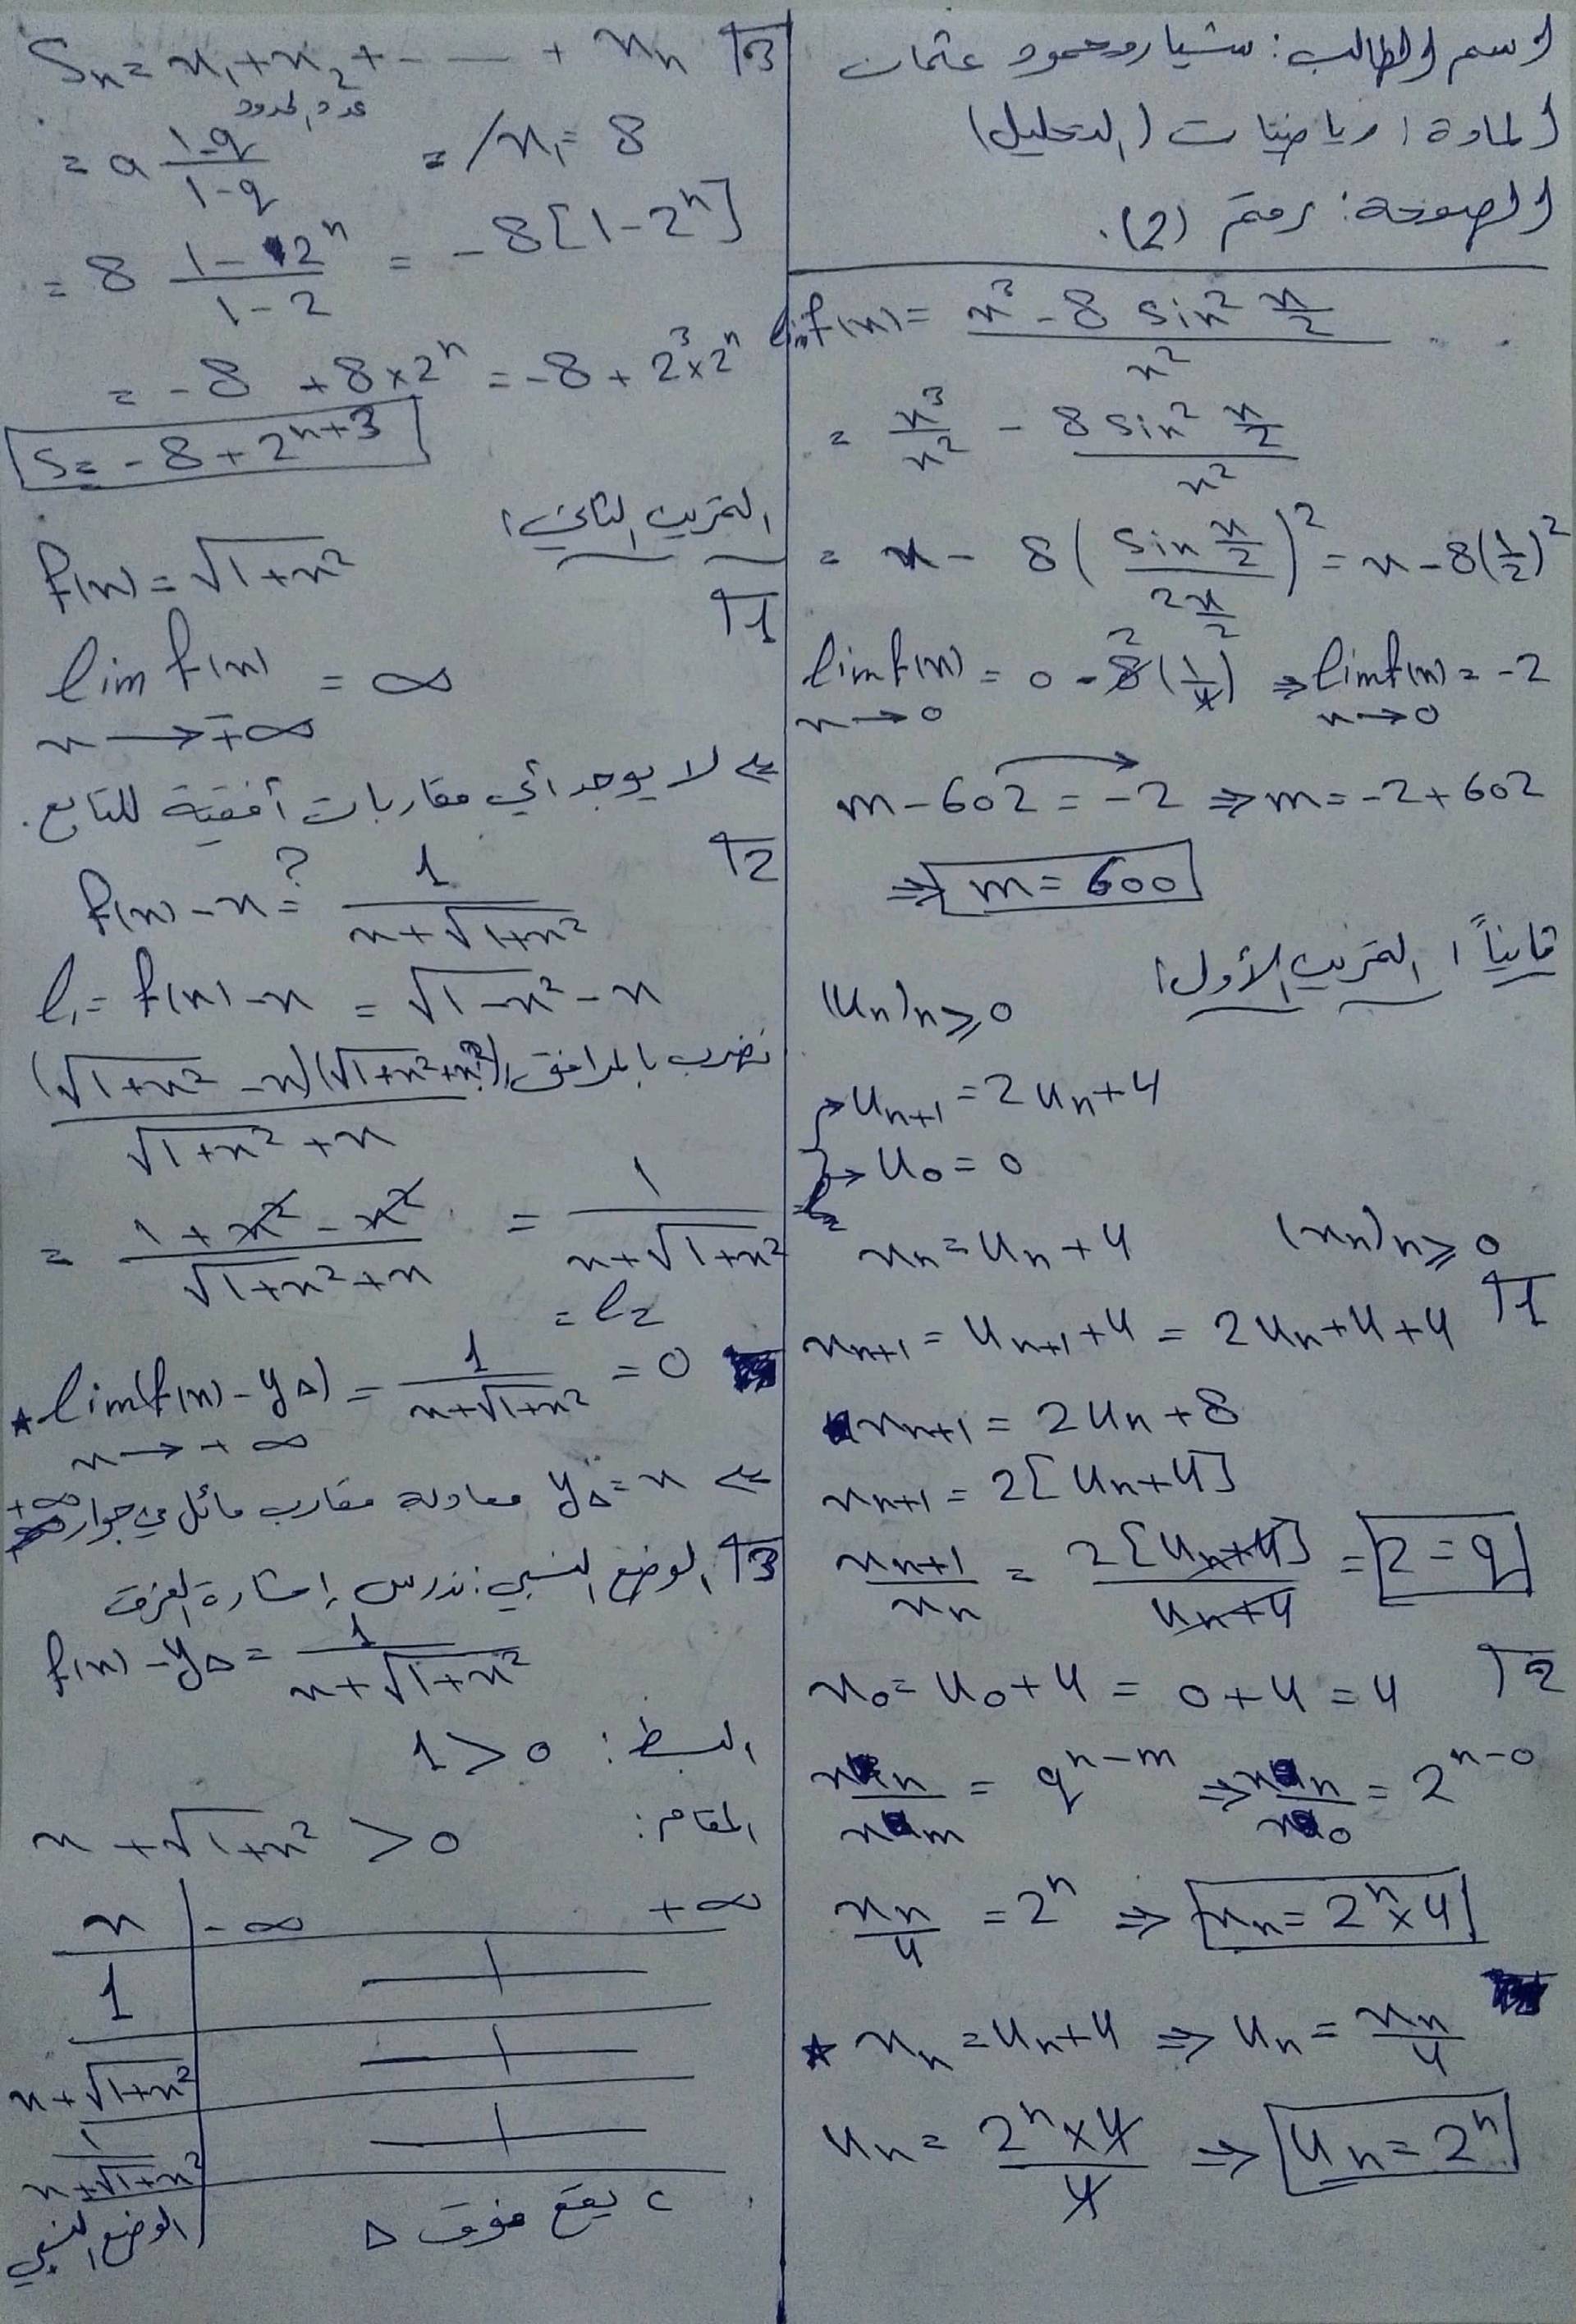 اسم الطالب: شيار محمود عثمان
المادة: رياضيات (التحليل)
الصفحة: رقم (2).
lim f(x) = (x³ - 8 sin² x/2) / x²
= x³/x² - (8 sin² x/2) / x²
= x - 8 ( (sin x/2) / (2 x/2) )² = x - 8(1/2)²
lim f(x) = 0 - 8(1/4) ⇒ lim f(x) = -2
x→0 x→0
m - 602 = -2 ⇒ m = -2 + 602
⇒ m = 600
ثانياً: التمرين الأول:
(Un)n≥0
Un+1 = 2Un+4
U0 = 0
xn = Un+4 (xn)n≥0
1
xn+1 = Un+1+4 = 2Un+4+4
xn+1 = 2Un+8
xn+1 = 2[Un+4]
xn+1 / xn = 2[Un+4] / Un+4 = 2 = q
2
x0 = U0+4 = 0+4 = 4
xn / xm = q^(n-m) ⇒ xn / x0 = 2^(n-0)
xn / 4 = 2ⁿ ⇒ xn = 2ⁿ×4
* xn = Un+4 ⇒ Un = xn / 4
Un = 2ⁿ×4 / 4 ⇒ Un = 2ⁿ
3
Sn = x1+x2+ - - - + xn
عدد الحدود
= a (1-q) / (1-q) = / x1 = 8
= 8 (1-2ⁿ) / (1-2) = -8[1-2ⁿ]
= -8 + 8×2ⁿ = -8 + 2³×2ⁿ
S = -8 + 2ⁿ⁺³
التمرين الثاني:
f(x) = √(1+x²)
1
lim f(x) = ∞
x → ∓∞
⇐ لا يوجد أي مقاربات أفقية للتابع.
2
f(x) - x =? 1 / (x+√(1+x²))
l1 = f(x) - x = √(1-x²) - x
نضرب بالمرافق (√(1+x²) - x)(√(1+x²)+x) / (√(1+x²) + x)
= (1+x²-x²) / (√(1+x²)+x) = 1 / (x+√(1+x²))
= l2
* lim(f(x) - y∆) = 1 / (x+√(1+x²)) = 0
x → +∞
⇐ y∆ = x معادلة مقارب مائل في جوار +∞
3 الوضع النسبي: ندرس إشارة الفرق
f(x) - y∆ = 1 / (x+√(1+x²))
البسط: 1 > 0
المقام: x + √(1+x²) > 0
x | -∞ +∞
1 | +
x+√(1+x²) | +
1 / (x+√(1+x²)) | +
الوضع النسبي | c يقع فوق ∆